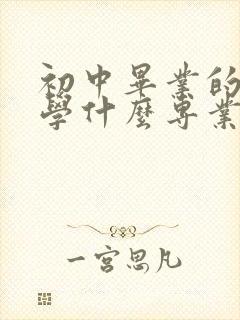 初中畢業的
學什麼專業
一宮思凡